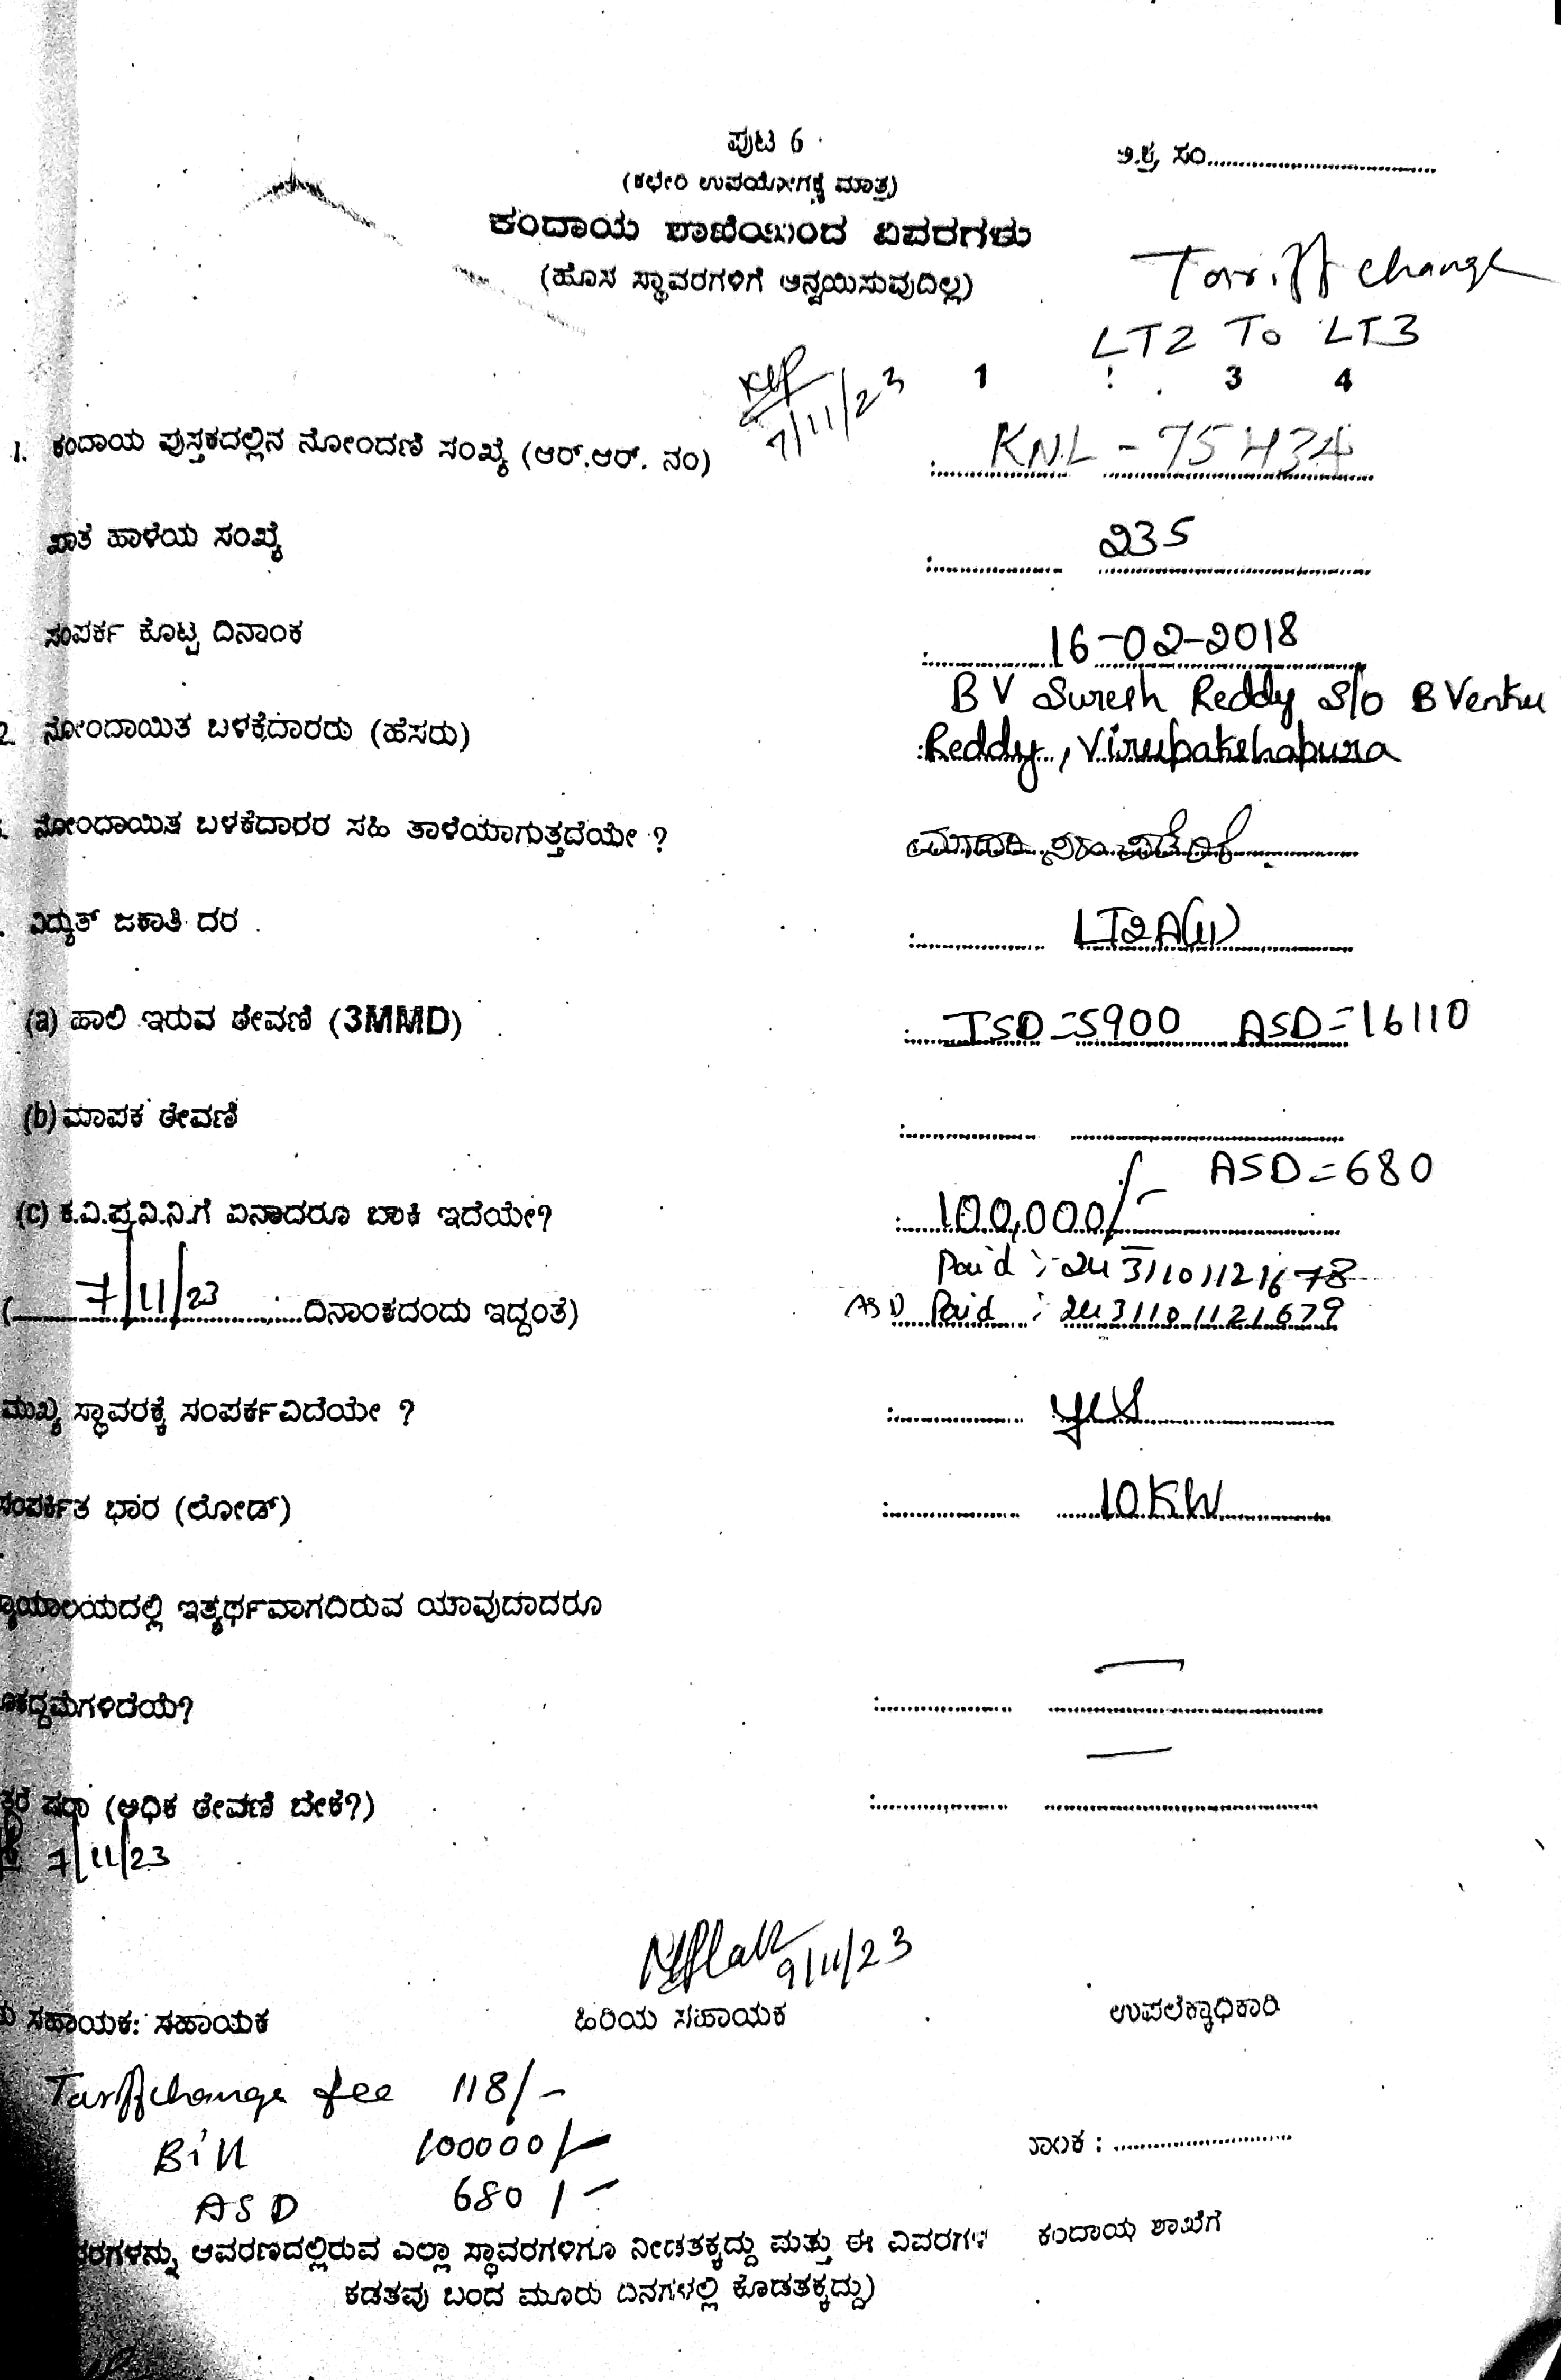 ಪುಟ 6
ಅ.ಕ್ರ. ಸಂ..............................
(ಕಛೇರಿ ಉಪಯೋಗಕ್ಕೆ ಮಾತ್ರ)
ಕಂದಾಯ ಶಾಖೆಯಿಂದ ವಿವರಗಳು
(ಹೊಸ ಸ್ಥಾವರಗಳಿಗೆ ಅನ್ವಯಿಸುವುದಿಲ್ಲ)
Tarriff change
LT2 To LT3
7/11/23
1 3 4
1. ಕಂದಾಯ ಪುಸ್ತಕದಲ್ಲಿನ ನೋಂದಣಿ ಸಂಖ್ಯೆ (ಆರ್.ಆರ್. ನಂ) : KNL - 75434
ಖಾತೆ ಹಾಳೆಯ ಸಂಖ್ಯೆ : 235
ಸಂಪರ್ಕ ಕೊಟ್ಟ ದಿನಾಂಕ : 16-02-2018
B V Suresh Reddy S/o B Venku
2. ನೋಂದಾಯಿತ ಬಳಕೆದಾರರು (ಹೆಸರು) : Reddy, Virupakshapura
ನೋಂದಾಯಿತ ಬಳಕೆದಾರರ ಸಹಿ ತಾಳೆಯಾಗುತ್ತದೆಯೇ ?
ವಿದ್ಯುತ್ ಜಕಾತಿ ದರ : LT2A(ii)
(a) ಹಾಲಿ ಇರುವ ಠೇವಣಿ (3MMD) : ISD=5900 ASD=16110
(b) ಮಾಪಕ ಠೇವಣಿ :
ASD=680
(c) ಕ.ವಿ.ಪ್ರ.ನಿ.ನಿ.ಗೆ ಏನಾದರೂ ಬಾಕಿ ಇದೆಯೇ? : 100,000/-
Paid :- 2431101121678
( 7/11/23 ದಿನಾಂಕದಂದು ಇದ್ದಂತೆ) ASD Paid : 2431101121679
ಮುಖ್ಯ ಸ್ಥಾವರಕ್ಕೆ ಸಂಪರ್ಕವಿದೆಯೇ ? : yes
ಸಂಪರ್ಕಿತ ಭಾರ (ಲೋಡ್) : 10KW
ನ್ಯಾಯಾಲಯದಲ್ಲಿ ಇತ್ಯರ್ಥವಾಗದಿರುವ ಯಾವುದಾದರೂ
ಮೊಕದ್ದಮೆಗಳಿದೆಯೆ? : —
ಷರಾ (ಅಧಿಕ ಠೇವಣಿ ಬೇಕೆ?) : —
7/11/23
9/11/23
ಸಹಾಯಕ: ಸಹಾಯಕ ಹಿರಿಯ ಸಹಾಯಕ ಉಪಲೆಕ್ಕಾಧಿಕಾರಿ
Tariff change fee 118/-
Bill 100000/-
ನಾಂಕ : ..............................
ASD 680/-
ಕಂದಾಯ ಶಾಖೆಗೆ
ರಗಳನ್ನು ಆವರಣದಲ್ಲಿರುವ ಎಲ್ಲಾ ಸ್ಥಾವರಗಳಿಗೂ ನೀಡತಕ್ಕದ್ದು ಮತ್ತು ಈ ವಿವರಗಳ
ಕಡತವು ಬಂದ ಮೂರು ದಿನಗಳಲ್ಲಿ ಕೊಡತಕ್ಕದ್ದು)